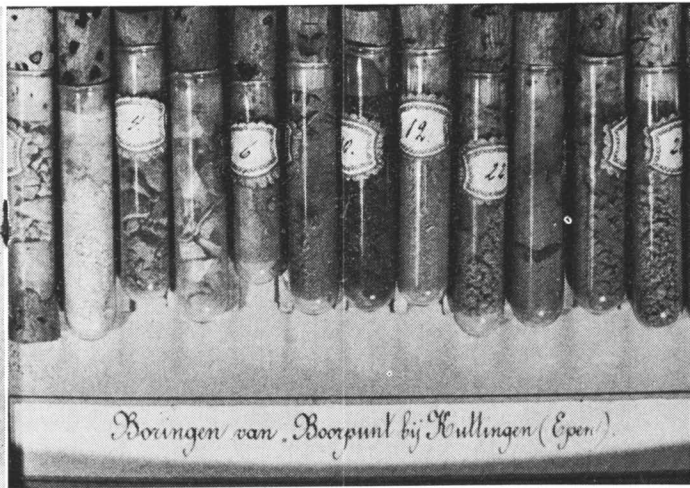 6
10.
12
22
Boringen van „Boorpunt bij Kuttingen (Epen).